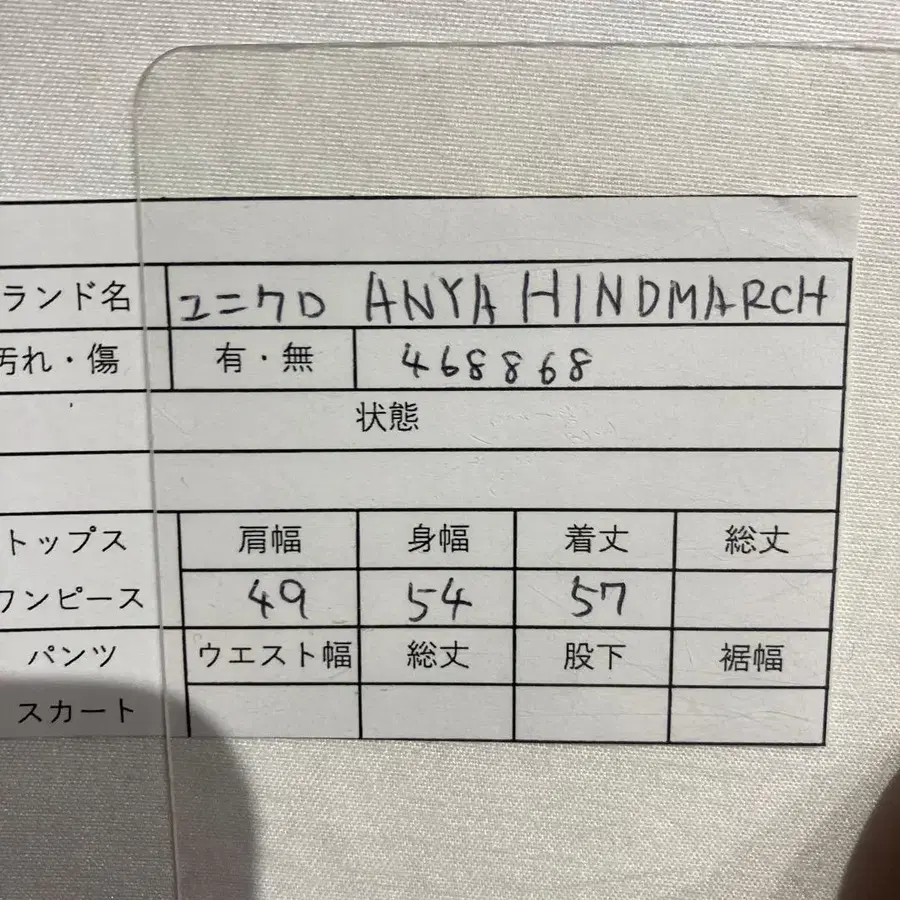 ランド名 ユニクロ ANYA HINDMARCH
汚れ・傷 有・無 468868
状態
トップス 肩幅 身幅 着丈 総丈
ワンピース 49 54 57
パンツ ウエスト幅 総丈 股下 裾幅
スカート